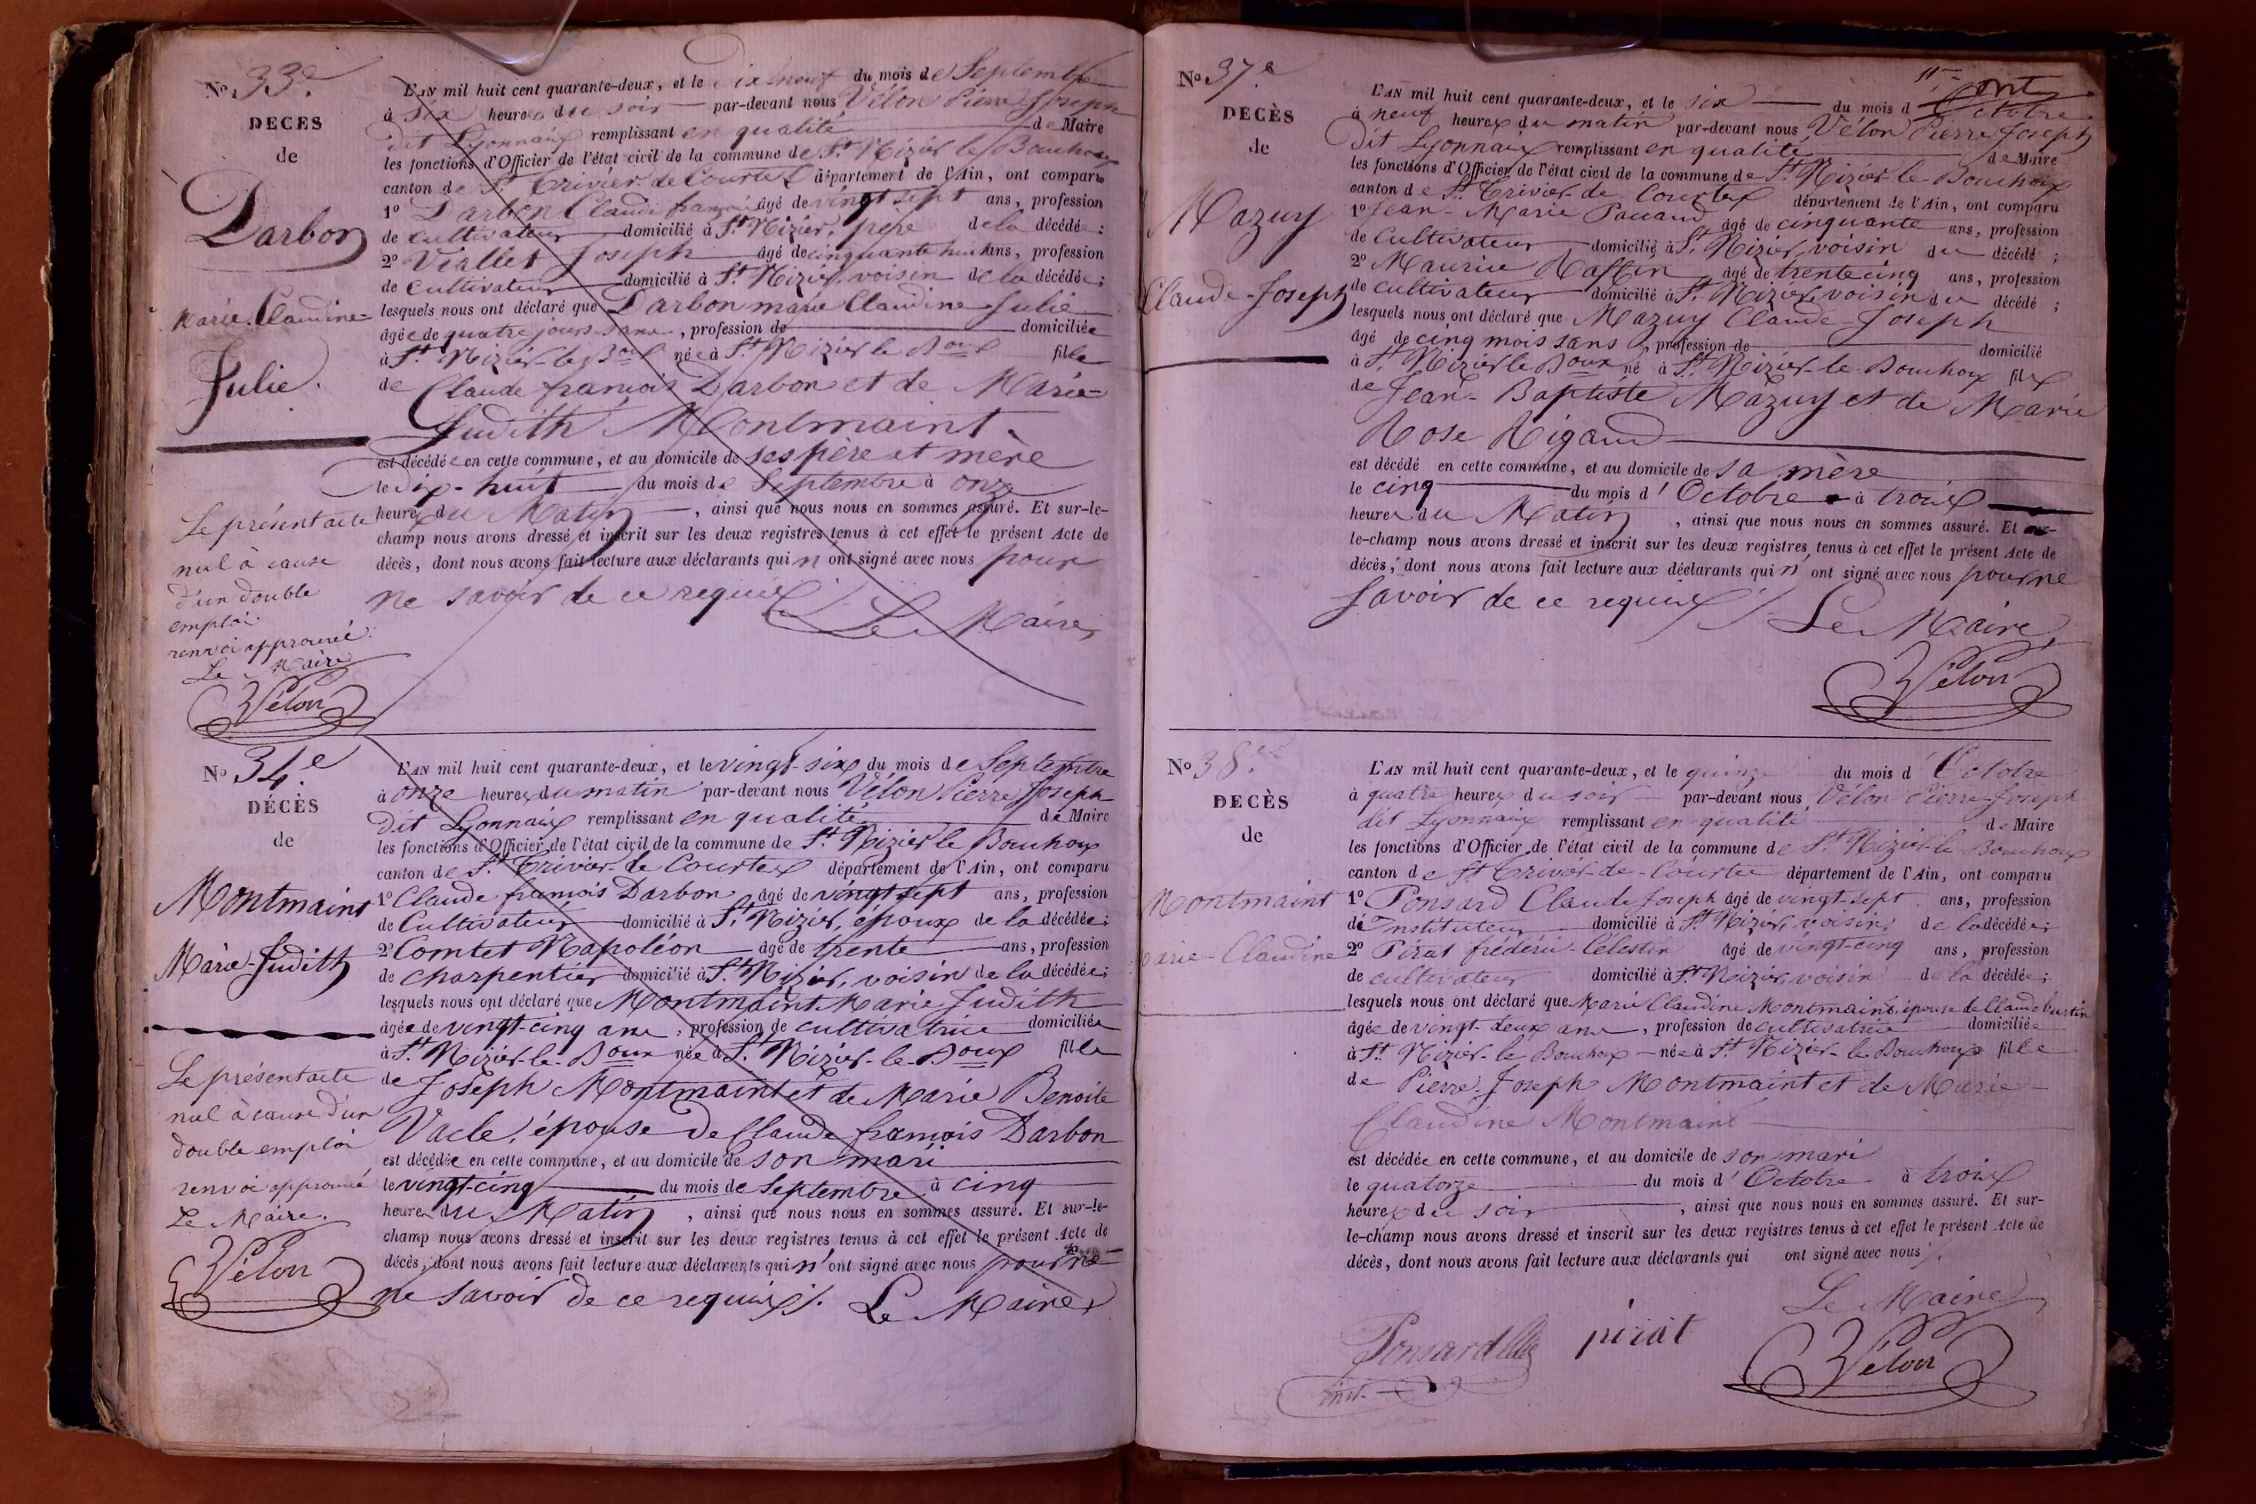 No 33e
DECES
de
Darbon
Marie Claudine
Julie.
L'AN mil huit cent quarante-deux, et le dix neuf du mois de Septembre
à six heures du soir par-devant nous Vélon Pierre Joseph
dit Lyonnaix remplissant en qualité de Maire
les fonctions d'Officier de l'état civil de la commune de St. Nizier le Bouchoux
canton de St. Trivier de Courtes département de l'Ain, ont comparu
1o Darbon Claude françois âgé de vingt sept ans, profession
de cultivateur domicilié à St. Nizier, père de la décédée;
2o Viallet Joseph âgé de cinquante huit ans, profession
de cultivateur domicilié à St. Nizier, voisin de la décédée;
lesquels nous ont déclaré que Darbon marie Claudine Julie
âgée de quatre jours sans, profession de domiciliée
à St. Nizier-le-Boux née à St. Nizier le Boux fille
de Claude francois Darbon et de Marie-
Judith Montmaint.
est décédée en cette commune, et au domicile de ses père et mère
le dix-huit du mois de Septembre à onze
heures du Matin, ainsi que nous nous en sommes assuré. Et sur-le-
champ nous avons dressé et inscrit sur les deux registres tenus à cet effet le présent Acte de
décès, dont nous avons fait lecture aux déclarants qui n'ont signé avec nous pour
ne savoir de ce requis Le Maire,
Le présent acte
nul à cause
d'un double
emploi.
renvoi approuvé.
Le Maire
Vélon
No 34.e
DÉCÈS
de
Montmaint
Marie-Judith
L'AN mil huit cent quarante-deux, et le vingt-six du mois de Septembre
à onze heures du matin par-devant nous Vélon Pierre Joseph
Dit Lyonnaix remplissant en qualité de Maire
les fonctions d'Officier de l'état civil de la commune de St. Nizier le Bouchoux
canton de St. Trivier-de Courtes département de l'Ain, ont comparu
1o Claude francois Darbon âgé de vingt sept ans, profession
de Cultivateur domicilié à St. Nizier, époux de la décédée;
2o Comtet Napoléon âgé de trente ans, profession
de charpentier domicilié à St. Nizier, voisin de la décédée;
lesquels nous ont déclaré que Montmaint Marie Judith
âgée de vingt-cinq ans, profession de cultivatrice domiciliée
à St. Nizier-le-Boux née à St. Nizier-le-Boux fille
de Joseph Montmaint et de Marie Benoite
Vacle, épouse de Claude francois Darbon
est décédée en cette commune, et au domicile de son mari
le vingt-cinq du mois de Septembre à cinq
heures du Matin, ainsi que nous nous en sommes assuré. Et sur-le-
champ nous avons dressé et inscrit sur les deux registres tenus à cet effet le présent Acte de
décès, dont nous avons fait lecture aux déclarants qui n'ont signé avec nous pour ne
ne savoir de ce requis. Le Maire,
Le présent acte
nul à cause d'un
double emploi
renvoi approuvé
Le Maire.
Vélon
No 37.e
DECÈS
de
Mazuy
Claude-Joseph
L'AN mil huit cent quarante-deux, et le six du mois d'Octobre
à neuf heures du matin par-devant nous Vélon Pierre Joseph
Dit Lyonnaix remplissant en qualité de Maire
les fonctions d'Officier de l'état civil de la commune de St. Nizier-le-Bouchoux
canton de St. Trivier-de Courtes département de l'Ain, ont comparu
1o Jean-Marie Paccaud âgé de cinquante ans, profession
de Cultivateur domicilié à St. Nizier, voisin du décédé;
2o Maurice âgé de trente cinq ans, profession
de cultivateur domicilié à St. Nizier, voisin du décédé;
lesquels nous ont déclaré que Mazuy Claude Joseph
âgé de cinq mois sans profession de domicilié
à St. Nizier le Boux né à St. Nizier-le-Bouchoux fils
de Jean-Baptiste Mazuy et de Marie
Rose Rigaud
est décédé en cette commune, et au domicile de sa mère
le cinq du mois d'Octobre à trois
heures du Matin, ainsi que nous nous en sommes assuré. Et sur-
le-champ nous avons dressé et inscrit sur les deux registres tenus à cet effet le présent Acte de
décès, dont nous avons fait lecture aux déclarants qui n'ont signé avec nous pour ne
savoir de ce requis Le Maire,
Vélon
No 38.e
DECÈS
de
Montmaint
Marie-Claudine
L'AN mil huit cent quarante-deux, et le quinze du mois d'Octobre
à quatre heures du soir par-devant nous Vélon Pierre-Joseph
dit Lyonnaix remplissant en qualité de Maire
les fonctions d'Officier de l'état civil de la commune de St. Nizier-le Bouchoux
canton de St Trivier-de-Courtes département de l'Ain, ont comparu
1o Ponsard Claude Joseph âgé de vingt-sept ans, profession
de Instituteur domicilié à St. Nizier, voisin de la décédée;
2o Pirat frédéric-Célestin âgé de vingt-cinq ans, profession
de cultivateur domicilié à St. Nizier, voisin de la décédée;
lesquels nous ont déclaré que Marie Claudine Montmaint, épouse de Claude
âgée de vingt-deux ans, profession de cultivatrice domiciliée
à St. Nizier-le Bouchoux née à St. Nizier-le Bouchoux fille
de Pierre-Joseph Montmaint et de Marie-
Claudine Montmaint
est décédée en cette commune, et au domicile de son mari
le quatorze du mois d'Octobre à trois
heures du soir, ainsi que nous nous en sommes assuré. Et sur-
le-champ nous avons dressé et inscrit sur les deux registres tenus à cet effet le présent Acte de
décès, dont nous avons fait lecture aux déclarants qui ont signé avec nous.
Le Maire,
Ponsard pirat Vélon
inst.